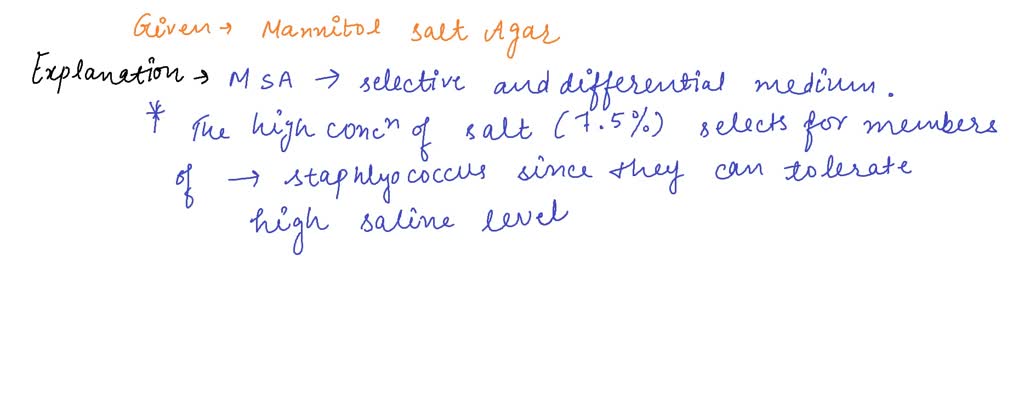 Given → Mannitol salt Agar
Explanation → MSA → selective and differential medium.
* The high concⁿ of salt (7.5%) selects for members
of → staphlyococcus since they can tolerate
high saline level